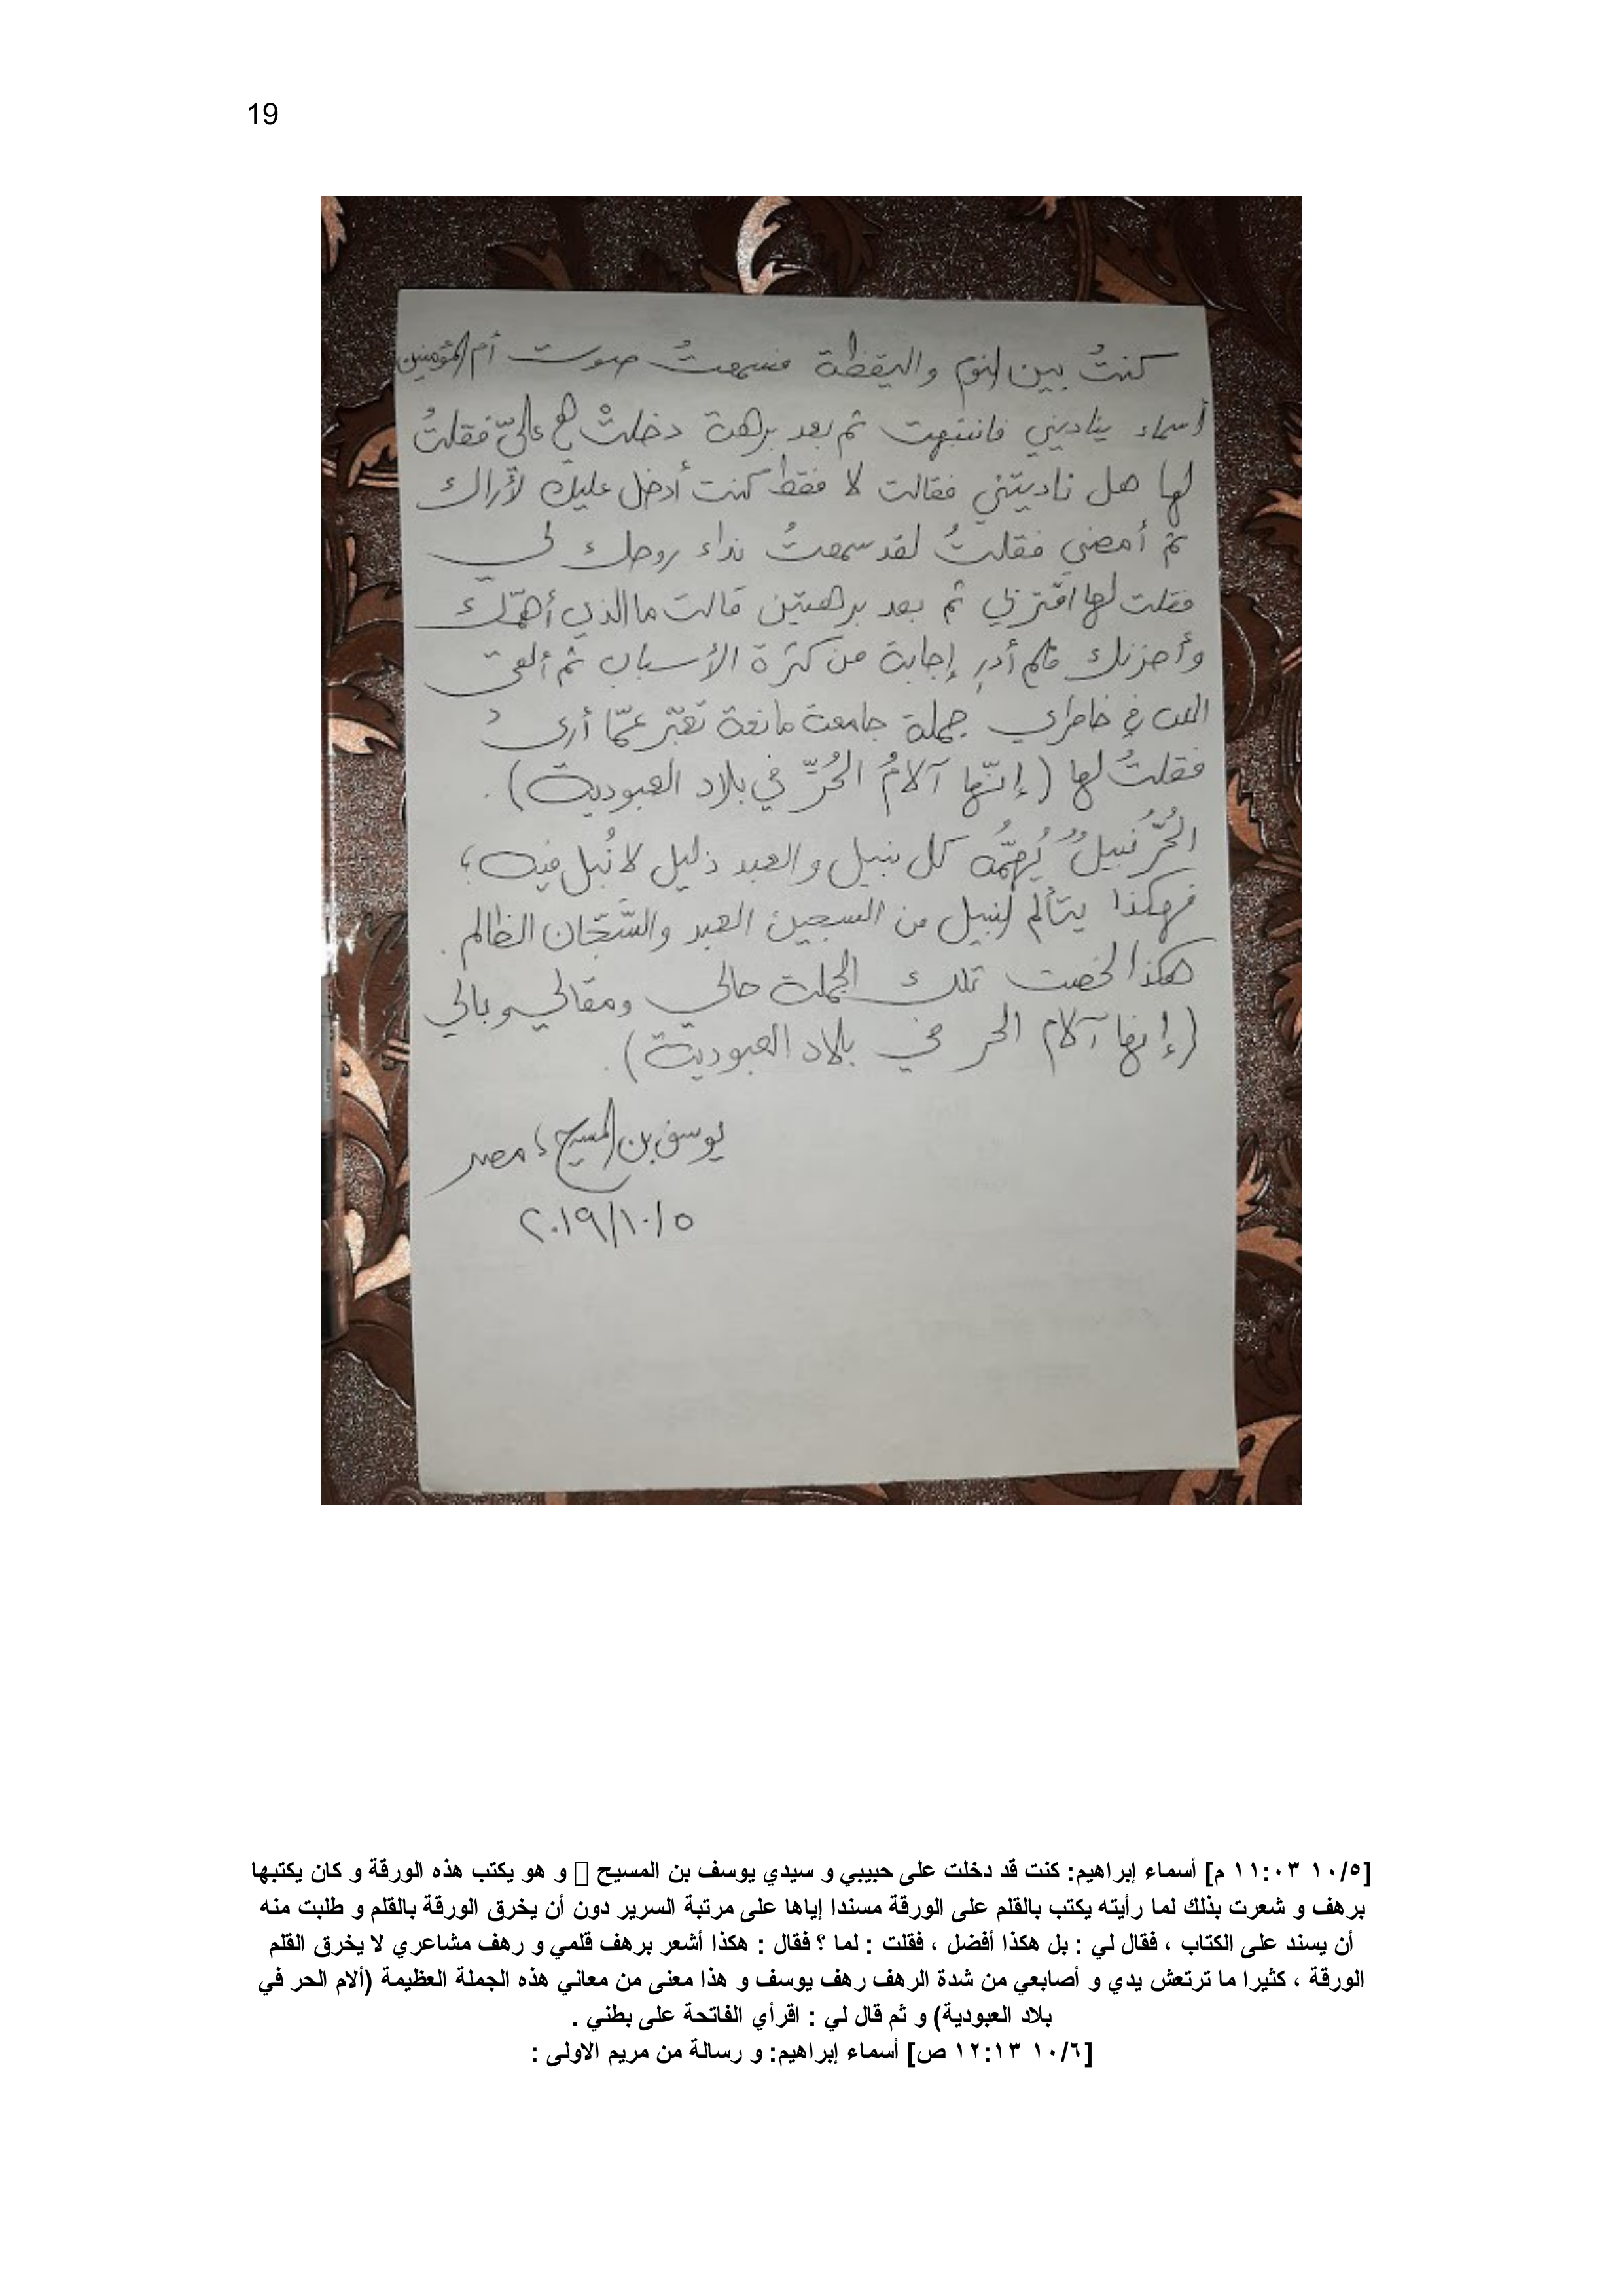 19
كنتُ بين النوم واليقظة فسمعتُ صوت أم المؤمنين
أسماء يناديني فانتبهت ثم بعد برهة دخلتْ هي عليّ فقلتُ
لها هل ناديتني فقالت لا فقط كنت أدخل عليك لأراك
ثم أمضي فقلتُ لقد سمعتُ نداء روحك لي
فقلت لها اقتربي ثم بعد برهتين قالت ما الذي أهمّك
وأحزنك فلم أدرِ إجابة من كثرة الأسباب ثم ألقى
الله في خاطري جملة جامعة مانعة تعبّر عمّا أرى
فقلتُ لها (إنّها آلامُ الحُرِّ في بلاد العبودية) .
الحُرُّ نبيلٌ يُهِمُّه كل نبيل والعبد ذليل لا نُبل فيه ؛
فهكذا يتألم النبيل من السجين العبد والسَّجّان الظالم .
هكذا لخصت تلك الجملة حالي ومقالي وبالي
(إنها آلام الحر في بلاد العبودية) .
يوسف بن المسيح ؛ مصر
٢٠١٩/١٠/٥
[١٠/٥ ١١:٠٣ م] أسماء إبراهيم: كنت قد دخلت على حبيبي و سيدي يوسف بن المسيح و هو يكتب هذه الورقة و كان يكتبها
برهف و شعرت بذلك لما رأيته يكتب بالقلم على الورقة مسندا إياها على مرتبة السرير دون أن يخرق الورقة بالقلم و طلبت منه
أن يسند على الكتاب ، فقال لي : بل هكذا أفضل ، فقلت : لما ؟ فقال : هكذا أشعر برهف قلمي و رهف مشاعري لا يخرق القلم
الورقة ، كثيرا ما ترتعش يدي و أصابعي من شدة الرهف رهف يوسف و هذا معنى من معاني هذه الجملة العظيمة (ألام الحر في
بلاد العبودية) و ثم قال لي : اقرأي الفاتحة على بطني .
[١٠/٦ ١٢:١٣ ص] أسماء إبراهيم: و رسالة من مريم الاولى :